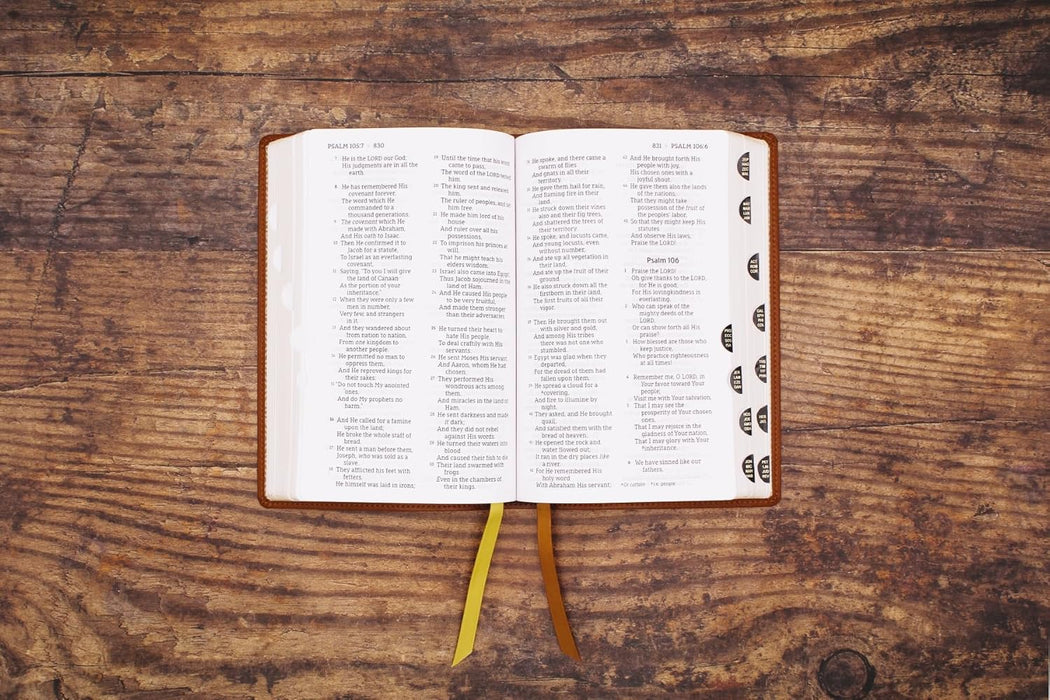 PSALM 105:7 830
7 He is the LORD our God;
His judgments are in all the
earth.
8 He has remembered His
covenant forever,
The word which He
commanded to a
thousand generations,
9 The covenant which He
made with Abraham,
And His oath to Isaac.
10 Then He confirmed it to
Jacob for a statute,
To Israel as an everlasting
covenant,
11 Saying, "To you I will give
the land of Canaan
As the portion of your
inheritance,"
12 When they were only a few
men in number,
Very few, and strangers
in it.
13 And they wandered about
from nation to nation,
From one kingdom to
another people.
14 He permitted no man to
oppress them,
And He reproved kings for
their sakes:
15 "Do not touch My anointed
ones,
And do My prophets no
harm."
16 And He called for a famine
upon the land;
He broke the whole staff of
bread.
17 He sent a man before them,
Joseph, who was sold as a
slave.
18 They afflicted his feet with
fetters,
He himself was laid in irons;
19 Until the time that his word
came to pass,
The word of the LORD
him.
20 The king sent and released
him,
The ruler of peoples, and set
him free.
21 He made him lord of his
house
And ruler over all his
possessions,
22 To imprison his princes at
will,
That he might teach his
elders wisdom.
23 Israel also came into Egypt;
Thus Jacob sojourned in the
land of Ham.
24 And He caused His people
to be very fruitful,
And made them stronger
than their adversaries.
25 He turned their heart to
hate His people,
To deal craftily with His
servants.
26 He sent Moses His servant,
And Aaron, whom He had
chosen.
27 They performed His
wondrous acts among
them,
And miracles in the land of
Ham.
28 He sent darkness and made
it dark;
And they did not rebel
against His words.
29 He turned their waters into
blood
And caused their fish to die.
30 Their land swarmed with
frogs
Even in the chambers of
their kings.
831 PSALM 106:6
31 He spoke, and there came a
swarm of flies
And gnats in all their
territory.
32 He gave them hail for rain,
And flaming fire in their
land.
33 He struck down their vines
also and their fig trees,
And shattered the trees of
their territory.
34 He spoke, and locusts came,
And young locusts, even
without number,
35 And ate up all vegetation in
their land,
And ate up the fruit of their
ground.
36 He also struck down all the
firstborn in their land,
The first fruits of all their
vigor.
37 Then He brought them out
with silver and gold,
And among His tribes
there was not one who
stumbled.
38 Egypt was glad when they
departed,
For the dread of them had
fallen upon them.
39 He spread a cloud for a
*covering,
And fire to illumine by
night.
40 They asked, and He brought
quail,
And satisfied them with the
bread of heaven.
41 He opened the rock and
water flowed out;
It ran in the dry places like
a river.
42 For He remembered His
holy word
With Abraham His servant;
43 And He brought forth His
people with joy,
His chosen ones with a
joyful shout.
44 He gave them also the lands
of the nations,
That they might take
possession of the fruit of
the peoples' labor,
45 So that they might keep His
statutes
And observe His laws,
Praise the LORD!
Psalm 106
1 Praise the LORD!
Oh give thanks to the LORD,
for He is good;
For His lovingkindness is
everlasting.
2 Who can speak of the
mighty deeds of the
LORD,
Or can show forth all His
praise?
3 How blessed are those who
keep justice,
Who practice righteousness
at all times!
4 Remember me, O LORD, in
Your favor toward Your
people;
Visit me with Your salvation,
5 That I may see the
prosperity of Your chosen
ones,
That I may rejoice in the
gladness of Your nation,
That I may glory with Your
*inheritance.
6 We have sinned like our
fathers,
*Or curtain *I.e. people
ACT
ROM
COR
GAL
EPH
PHI
COL